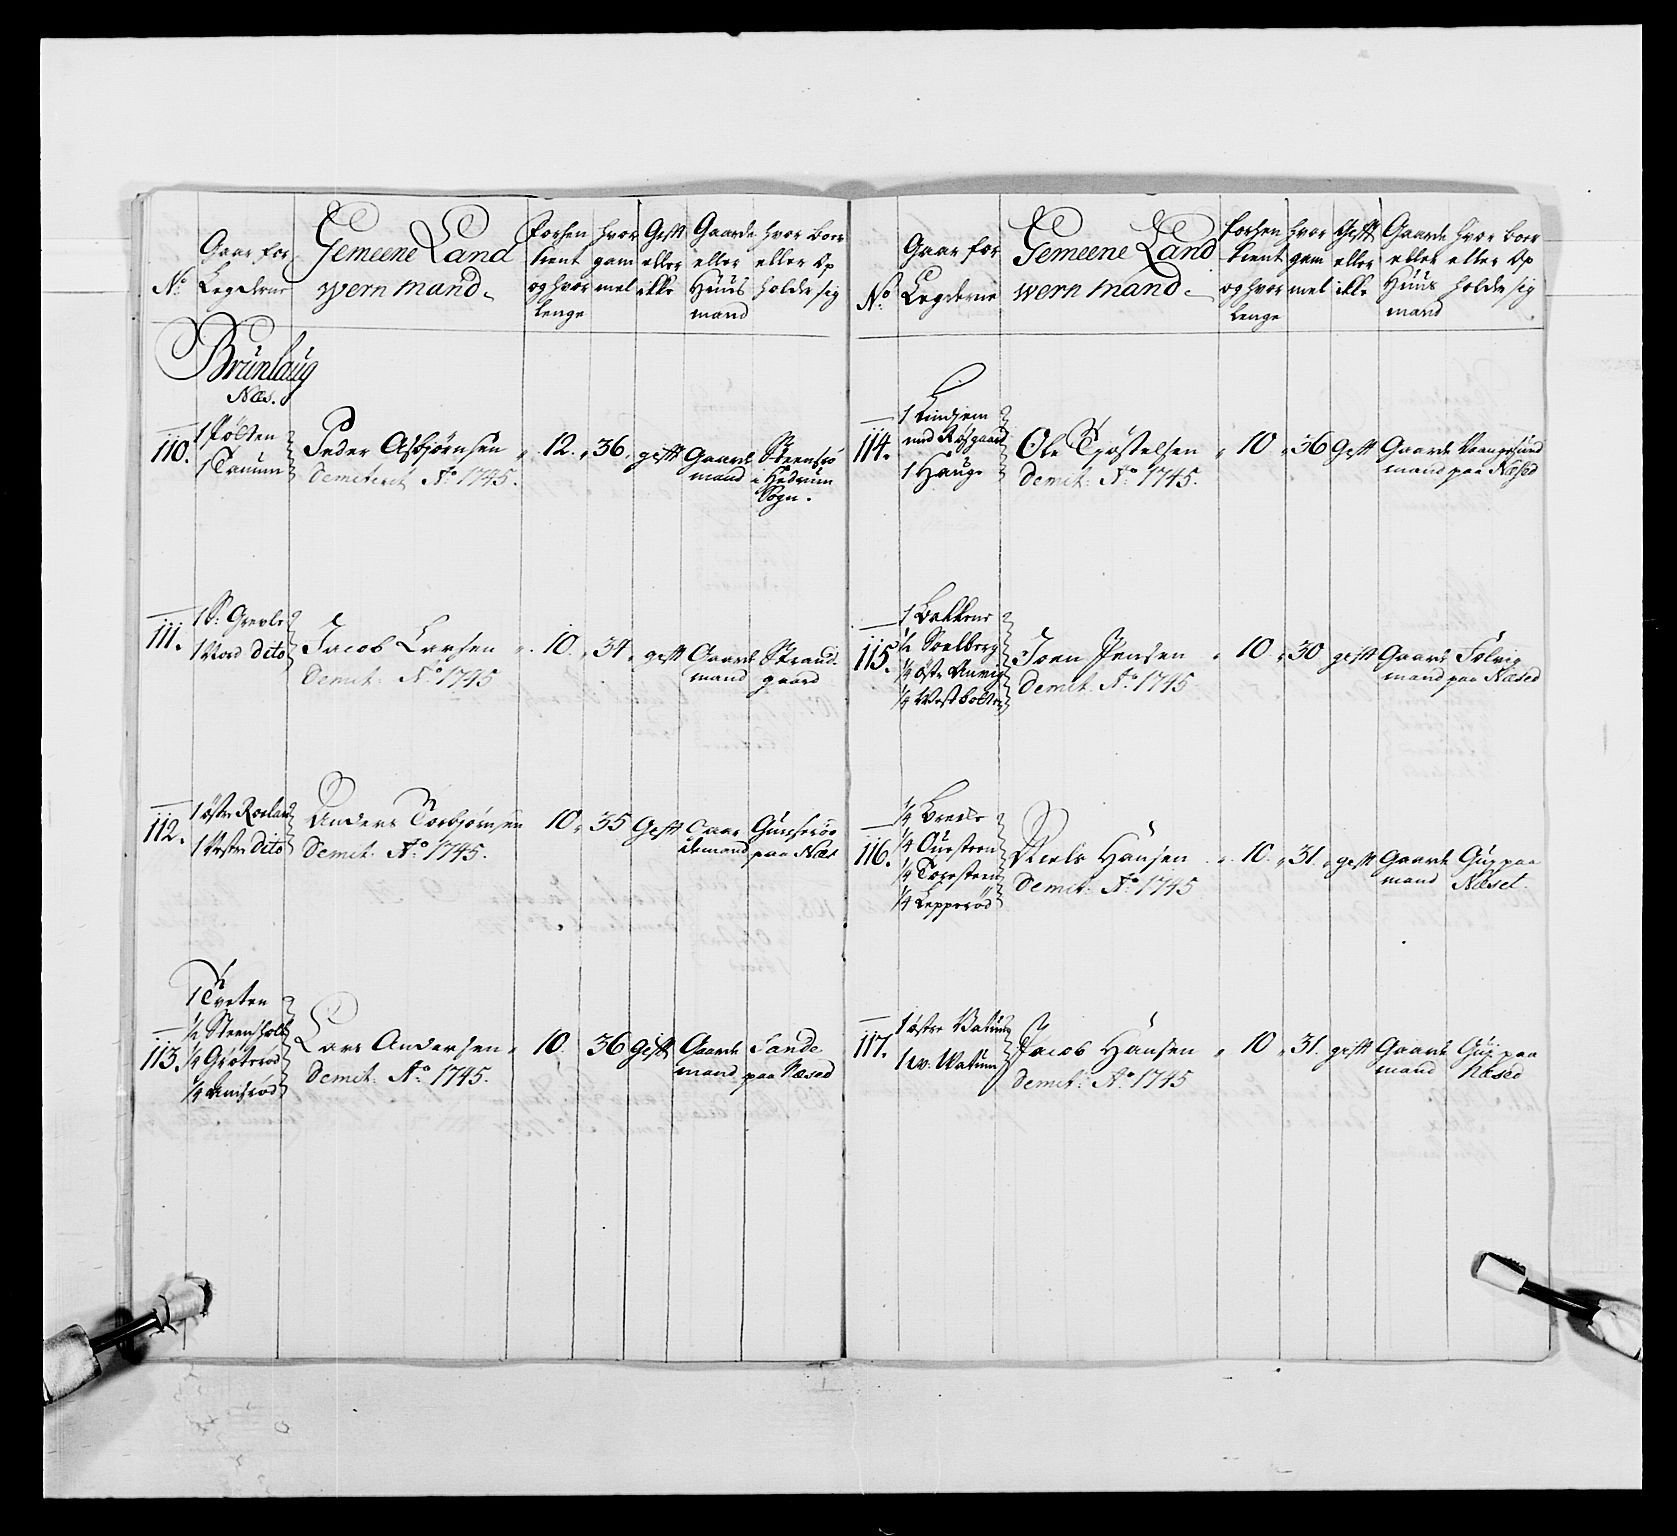 No
Gaar for
Legderne
Gemeene Land
wern Mand.
Forhen
tient
og hvor
lenge
hvor
gam
mel
Gift
eller
ikke
Gaarde
eller
Huus
mand
hvor boer
eller op
holder sig
Brunlaug
Næs.
110.
1 Fölsen
1 Tanum
Peder Asbjørnsen
Demiteret Ao 1745.
12. 36. gift
Gaard
mand
i Hedrum
Sogn.
111.
1 S: Grevle
1 Nord dito
Jacob Larsen
Demit: Ao 1745
10. 34. gift
Gaard
mand
Strand
gaard
112.
1 östre Roeland
1 Vestre dito
Anders Torbjørnsen
Demit: Ao 1745.
10. 35 Gift
paa Næs
113.
1 Tveten
1/2 Steensholt
1/4
1/4
Lars Andersen
Demit: Ao 1745.
10. 36 Gift
Gaard
mand
Sande
paa Næsed
No
Gaar for
Legderne
Gemeene Land
wern Mand.
Forhen
tient
og hvor
lenge
hvor
gam
mel
Gift
eller
ikke
Gaarde
eller
Huus
mand
hvor boer
eller op
holder sig
114.
1 Lindjem
med
1 Hauge
Ole Tjøstelsen
Demit: Ao 1745.
10 36 Gift
Gaard
mand
paa Næsed
115.
1 Bakkene
1/2 Soelberg
1/4 östre
1/4
Joen Jensen
Demit. Ao 1745
10. 30 gift
Gaard
mand
Folvig
paa Næsed
116.
1/4
1/4
1/4
1/4
Niels Hansen
Demit: Ao 1745
10. 31. gift
Gaard
mand
paa
Næset.
117.
1 östre Vatum
1 w. Watum
Jacob Hansen
Demit: Ao 1745
10 31. gift
Gaard
mand
paa
Næsed